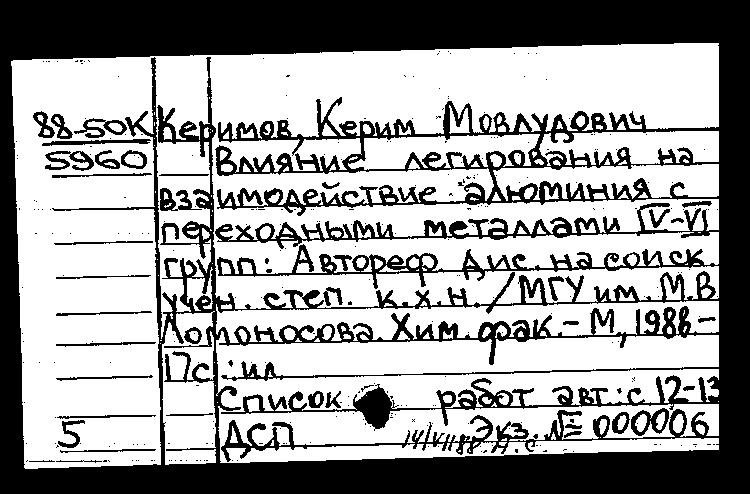 88-50К Керимов, Керим Мовлудович
5960 Влияние легирования на
взаимодействие алюминия с
переходными металлами IV-VI
групп: Автореф. дис. на соиск.
учен. степ. к.х.н. / МГУ им. М.В
Ломоносова. Хим. фак. - М, 1988 -
17с.: ил.
Список работ авт.: с 12-13
5 ДСП. Экз. № 000006